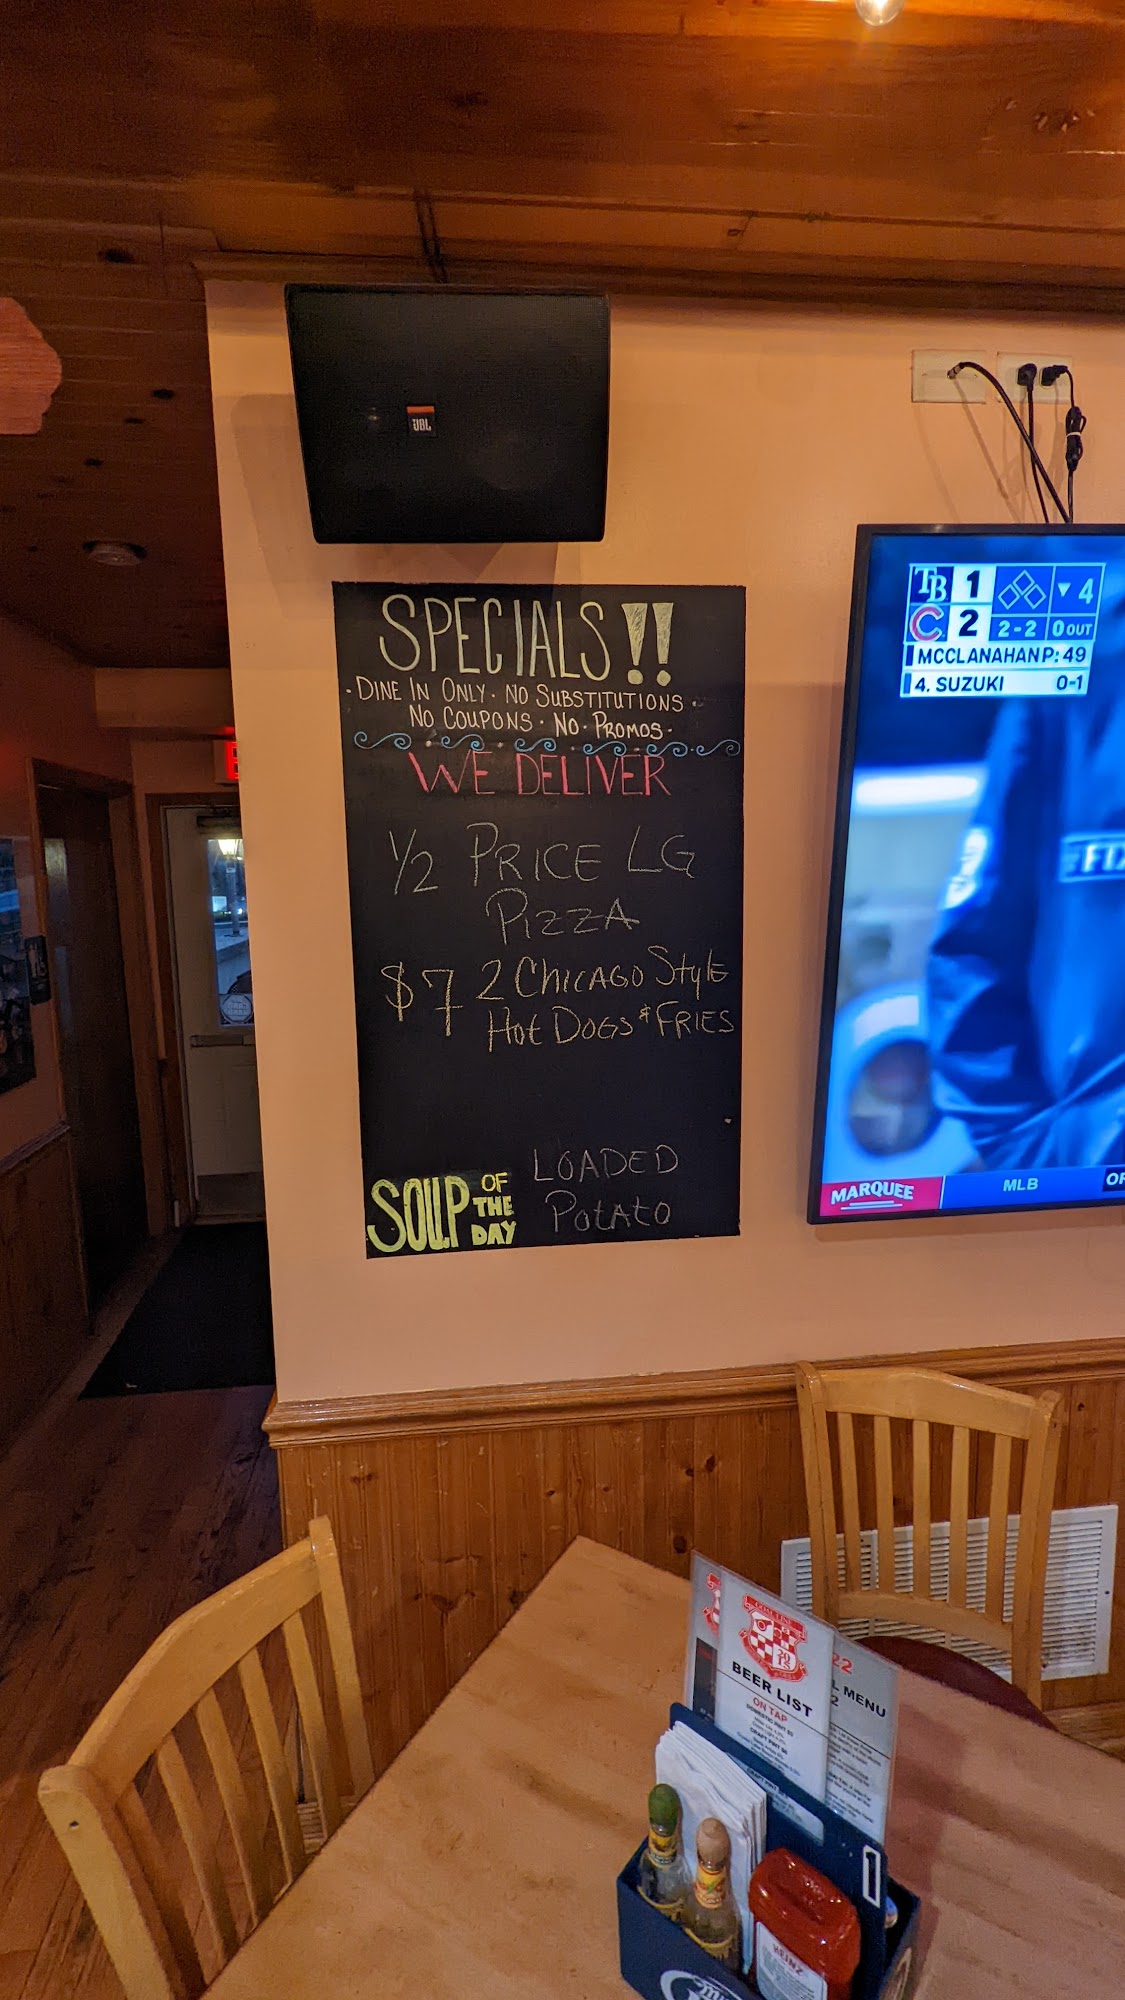 JBL
SPECIALS!!
· DINE IN ONLY · NO SUBSTITUTIONS ·
NO COUPONS · NO · PROMOS ·
WE DELIVER
1/2 PRICE LG
PIZZA
$7 2 CHICAGO StylE
Hot DOGS & FRIES
SOUP OF THE DAY
LOADED
PotAto
TB 1 ▼ 4
C 2 2-2 0 OUT
MCCLANAHAN P: 49
4. SUZUKI 0-1
MARQUEE
MLB
2015
BEER LIST
ON TAP
DOMESTIC PINT $5
CRAFT PINT $6
22
L MENU
2
1
HEINZ